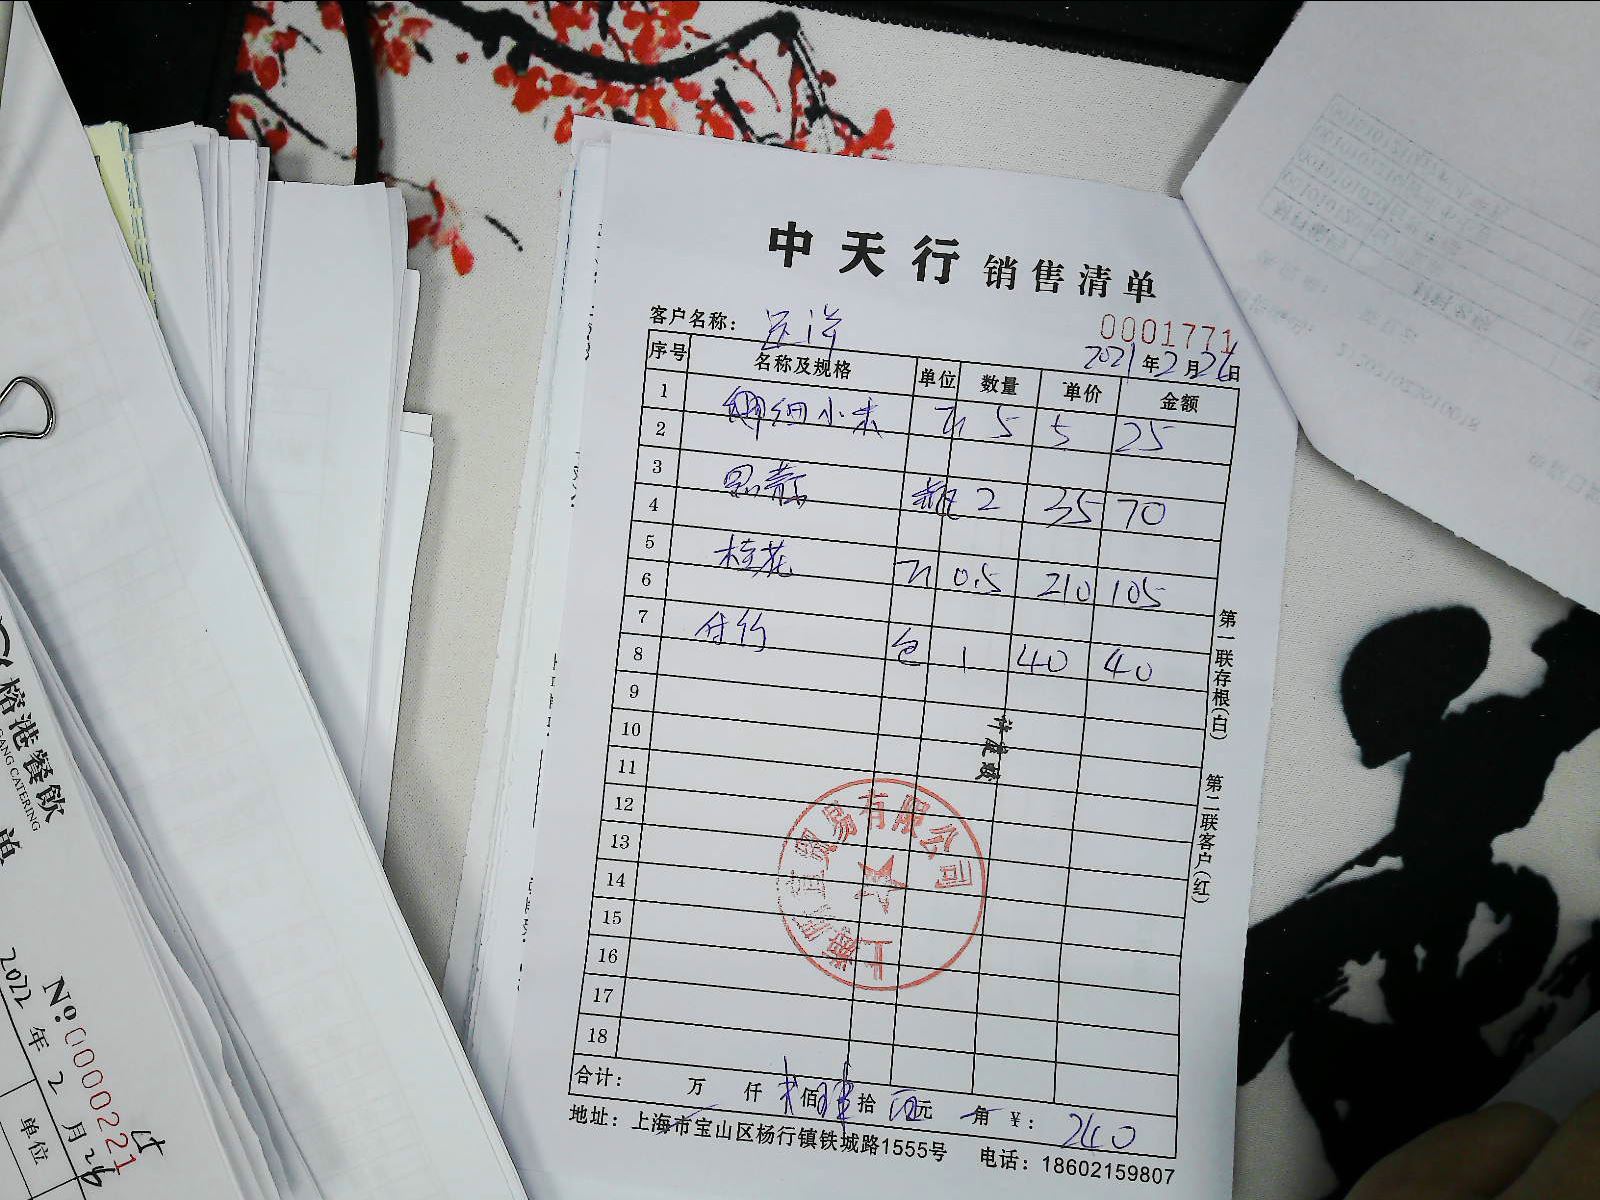 中天行 销售清单
客户名称： 远洋
0001771
2021年2月26日
序号 名称及规格 单位 数量 单价 金额
1
2 细小米 斤 5 5 25
3
4 瓶 2 35 70
5
6 桂花 斤 0.5 210 105
7
8 付竹 包 1 40 40
9
10
11
12
13
14
15
16
17
18
许建波
贸易有限公司
上海
合计： 万 仟 佰 拾 元 角 ￥： 240
地址：上海市宝山区杨行镇铁城路1555号 电话：18602159807
第一联存根(白)
第二联客户(红)
榕港餐飲
GANG CATERING
单
№:0000221
2022年2月26
单位